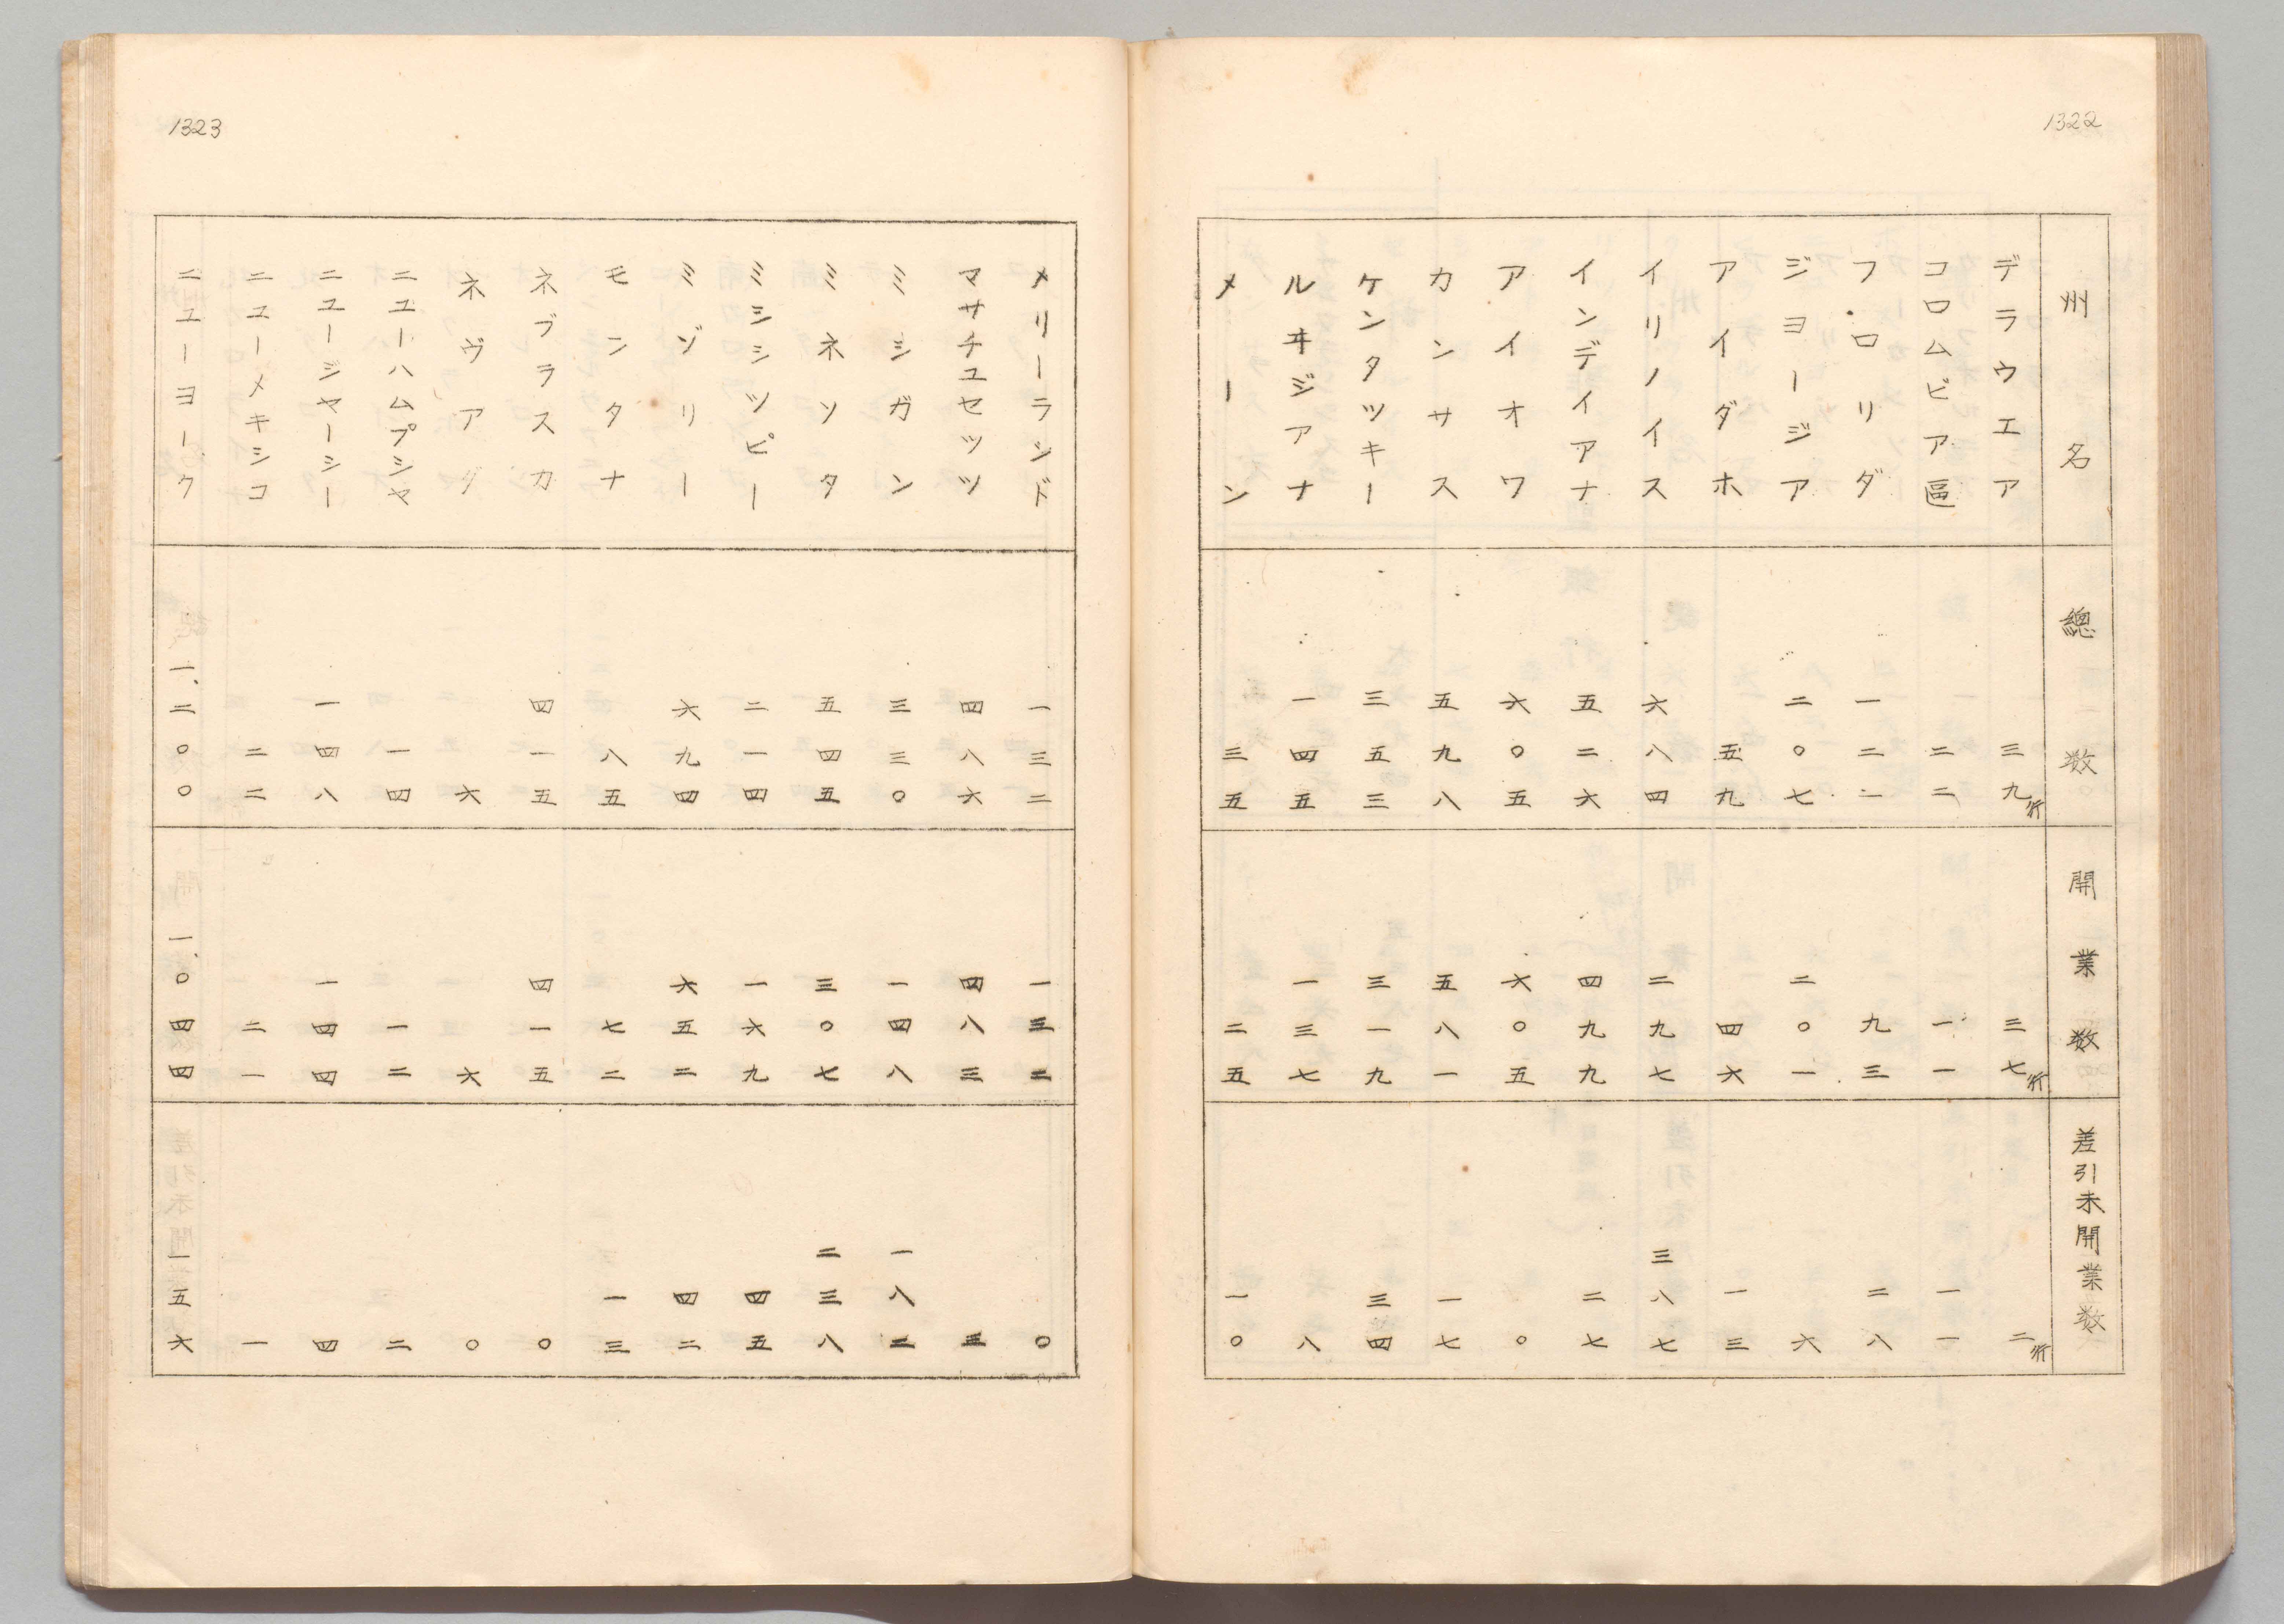 1322
州名 總数 開業数 差引未開業数
デラウエア 三九行 三七行 二行
コロムビア區 二二 一一 一一
フロリダ 一二一 九三 二八
ジヨージア 二〇七 二〇一 六
アイダホ 五九 四六 一三
イリノイス 六八四 二九七 三八七
インデイアナ 五二六 四九九 二七
アイオワ 六〇五 六〇五 〇
カンサス 五九八 五八一 一七
ケンタツキー 三五三 三一九 三四
ルヰジアナ 一四五 一三七 八
メーン 三五 二五 一〇
1323
メリーランド 一三二 一三二 〇
マサチユセツツ 四八六 四八三 三
ミシガン 三三〇 一四八 一八二
ミネソタ 五四五 三〇七 二三八
ミシシツピー 二一四 一六九 四五
ミゾリー 六九四 六五二 四二
モンタナ 八五 七二 一三
ネブラスカ 四一五 四一五 〇
ネヴアダ 六 六 〇
ニユーハムプシヤ 一四 一二 二
ニユージヤーシー 一四八 一四四 四
ニユーメキシコ 二二 二一 一
ニユーヨーク 一、二〇〇 一、〇四四 一五六